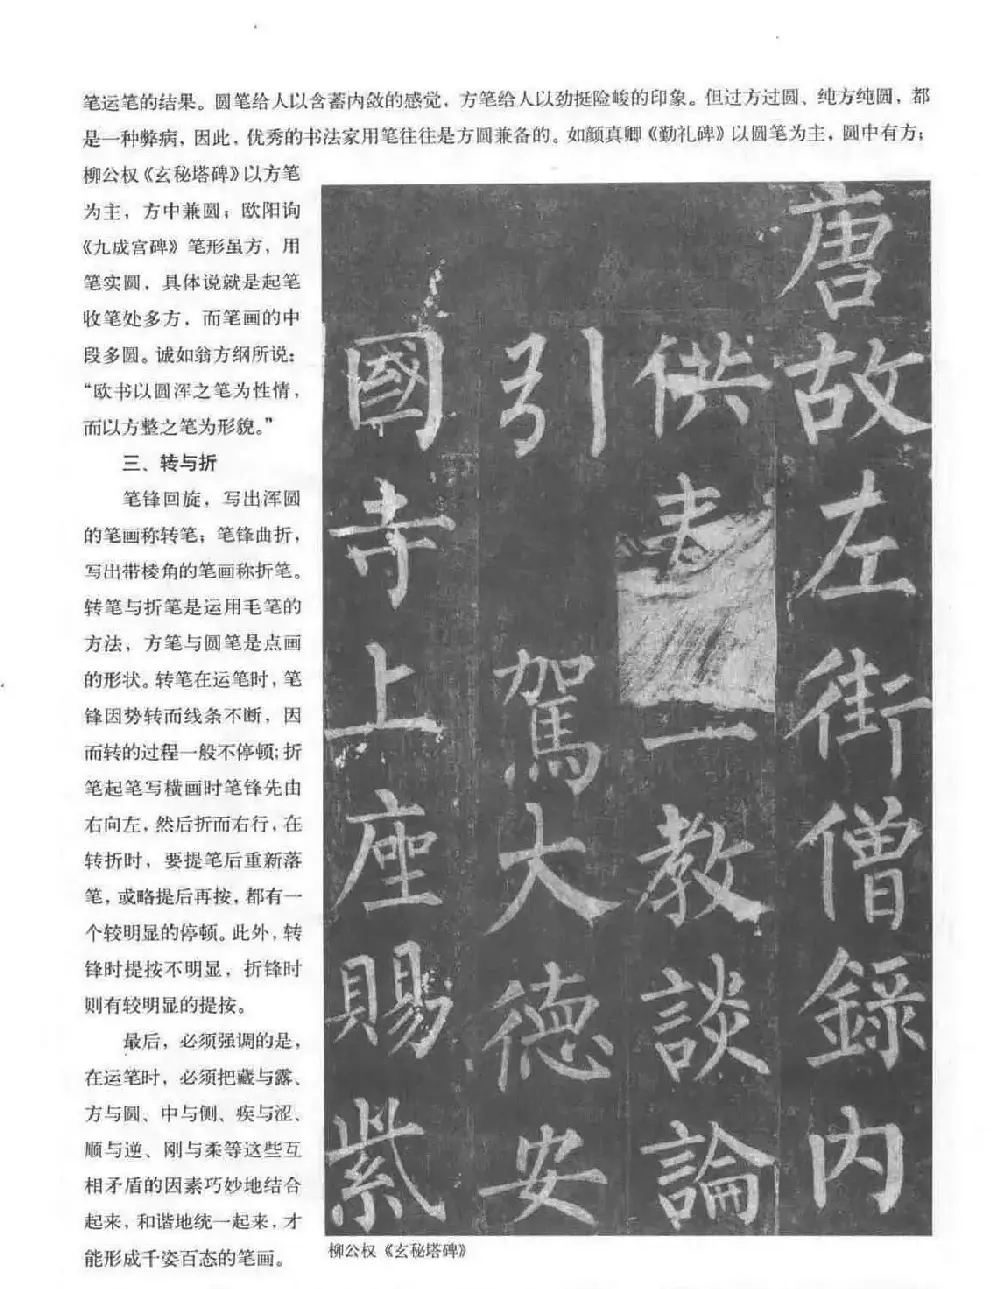 笔运笔的结果。圆笔给人以含蓄内敛的感觉，方笔给人以劲挺险峻的印象。但过方过圆、纯方纯圆，都
是一种弊病，因此，优秀的书法家用笔往往是方圆兼备的。如颜真卿《勤礼碑》以圆笔为主，圆中有方；
柳公权《玄秘塔碑》以方笔
为主，方中兼圆；欧阳询
《九成宫碑》笔形虽方，用
笔实圆，具体说就是起笔
收笔处多方，而笔画的中
段多圆。诚如翁方纲所说：
“欧书以圆浑之笔为性情，
而以方整之笔为形貌。”
三、转与折
笔锋回旋，写出浑圆
的笔画称转笔；笔锋曲折，
写出带棱角的笔画称折笔。
转笔与折笔是运用毛笔的
方法，方笔与圆笔是点画
的形状。转笔在运笔时，笔
锋因势转而线条不断，因
而转的过程一般不停顿；折
笔起笔写横画时笔锋先由
右向左，然后折而右行，在
转折时，要提笔后重新落
笔，或略提后再按，都有一
个较明显的停顿。此外，转
锋时提按不明显，折锋时
则有较明显的提按。
最后，必须强调的是，
在运笔时，必须把藏与露、
方与圆、中与侧、疾与涩、
顺与逆、刚与柔等这些互
相矛盾的因素巧妙地结合
起来，和谐地统一起来，才
能形成千姿百态的笔画。
唐故左街僧錄內
供奉三教談論
引駕大德安
國寺上座賜紫
柳公权《玄秘塔碑》